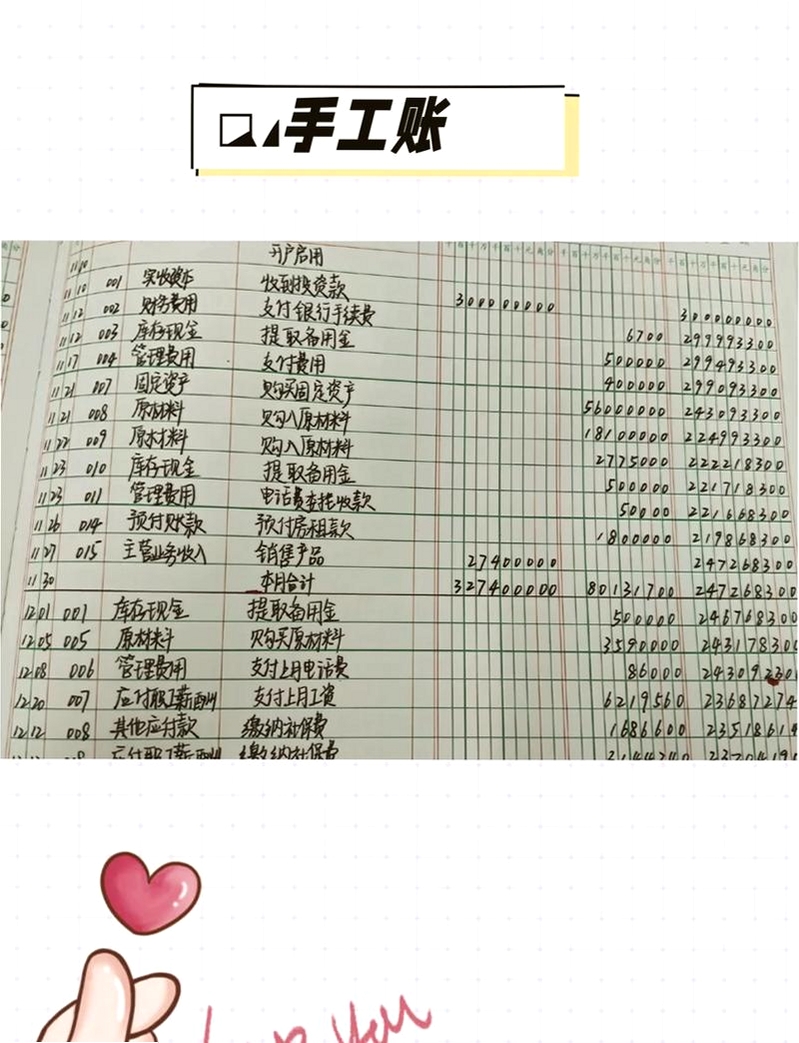 手工账
11 10 开户启用
11 10 001 实收资本 收到投资款 300000000 300000000
11 12 002 财务费用 支付银行手续费 6700 299993300
11 12 003 库存现金 提取备用金 500000 299493300
11 17 004 管理费用 支付费用 400000 299093300
11 21 007 固定资产 购买固定资产 56000000 243093300
11 21 008 原材料 购入原材料 18100000 224993300
11 22 009 原材料 购入原材料 2775000 222218300
11 23 010 库存现金 提取备用金 500000 221718300
11 23 011 管理费用 电话费委托收款 50000 221668300
11 26 014 预付账款 预付房租款 1800000 219868300
11 27 015 主营业务收入 销售产品 27400000 247268300
11 30 本月合计 327400000 80131700 247268300
12 01 001 库存现金 提取备用金 500000 246768300
12 05 005 原材料 购买原材料 3590000 243178300
12 08 006 管理费用 支付上月电话费 86000 243092300
12 20 007 应付职工薪酬 支付上月工资 6219560 23687274
12 12 008 其他应付款 缴纳社保费 1686600 23518614
应付职工薪酬 缴纳社保费
you